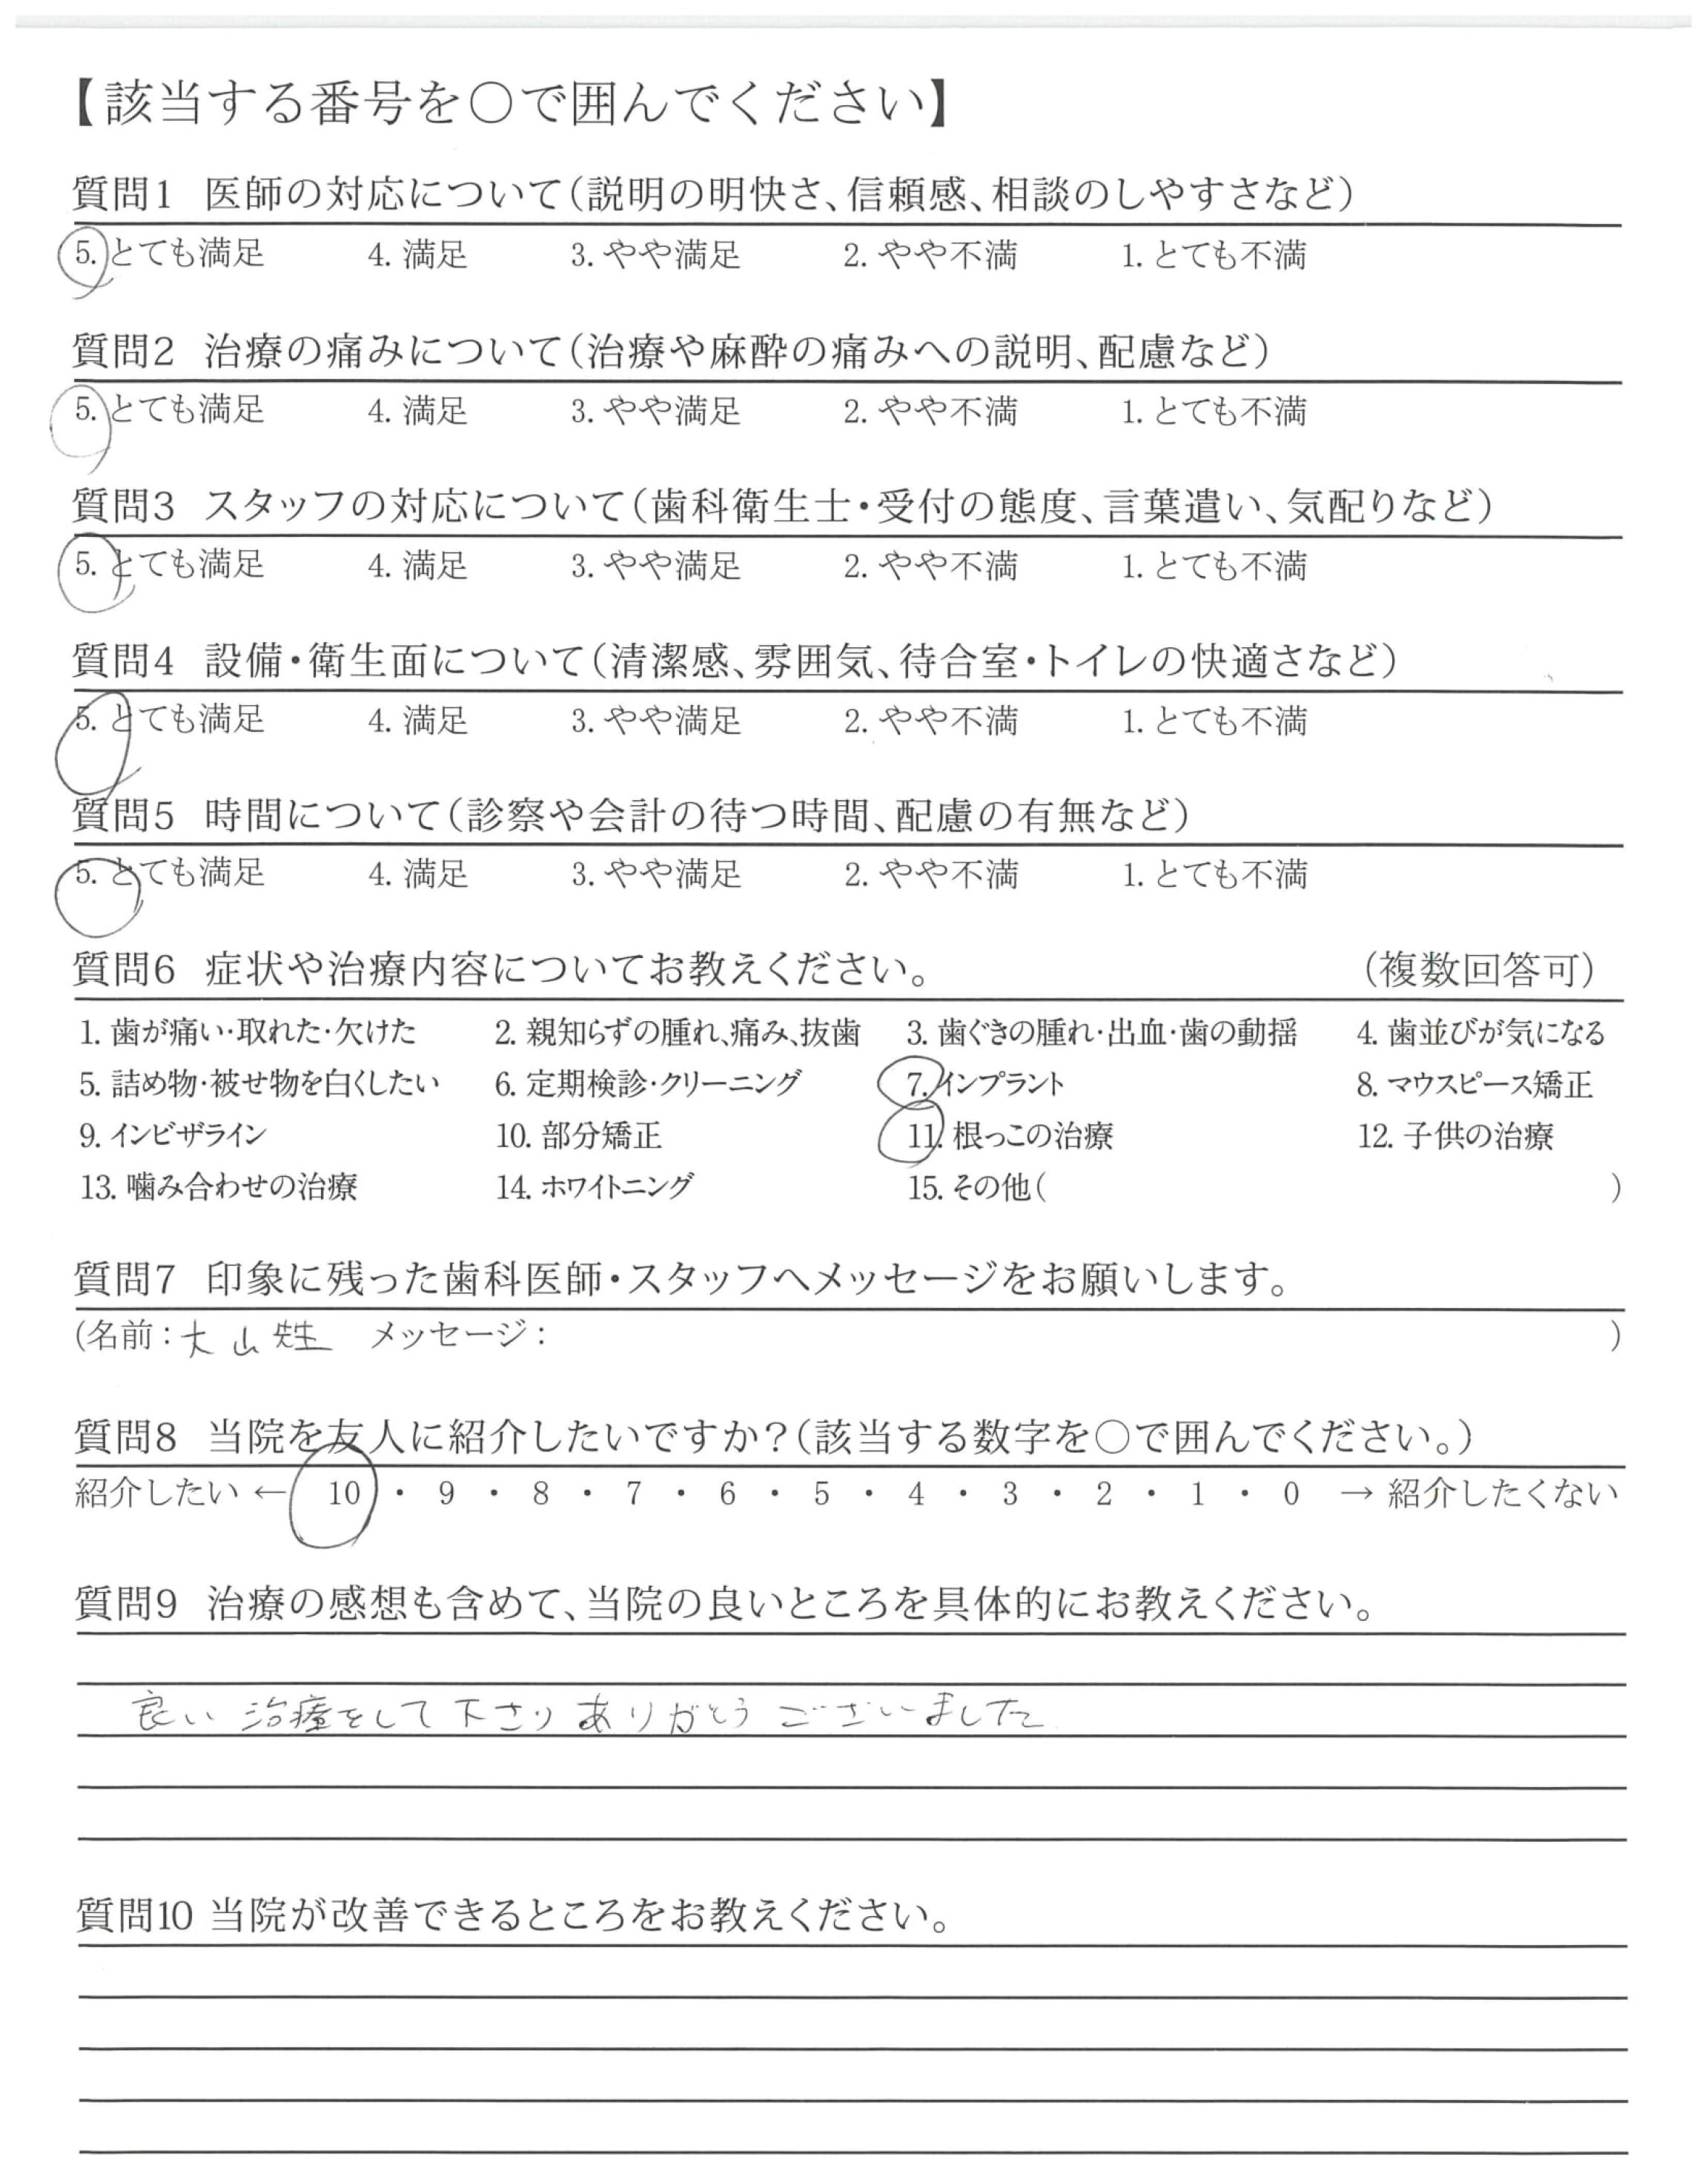 【該当する番号を○で囲んでください】
質問1 医師の対応について（説明の明快さ、信頼感、相談のしやすさなど）
5. とても満足 4. 満足 3. やや満足 2. やや不満 1. とても不満
質問2 治療の痛みについて（治療や麻酔の痛みへの説明、配慮など）
5. とても満足 4. 満足 3. やや満足 2. やや不満 1. とても不満
質問3 スタッフの対応について（歯科衛生士・受付の態度、言葉遣い、気配りなど）
5. とても満足 4. 満足 3. やや満足 2. やや不満 1. とても不満
質問4 設備・衛生面について（清潔感、雰囲気、待合室・トイレの快適さなど）
5. とても満足 4. 満足 3. やや満足 2. やや不満 1. とても不満
質問5 時間について（診察や会計の待つ時間、配慮の有無など）
5. とても満足 4. 満足 3. やや満足 2. やや不満 1. とても不満
質問6 症状や治療内容についてお教えください。 （複数回答可）
1. 歯が痛い・取れた・欠けた 2. 親知らずの腫れ、痛み、抜歯 3. 歯ぐきの腫れ・出血・歯の動揺 4. 歯並びが気になる
5. 詰め物・被せ物を白くしたい 6. 定期検診・クリーニング 7. インプラント 8. マウスピース矯正
9. インビザライン 10. 部分矯正 11. 根っこの治療 12. 子供の治療
13. 噛み合わせの治療 14. ホワイトニング 15. その他（ ）
質問7 印象に残った歯科医師・スタッフへメッセージをお願いします。
（名前：大山先生 メッセージ： ）
質問8 当院を友人に紹介したいですか？（該当する数字を○で囲んでください。）
紹介したい ← 10 ・ 9 ・ 8 ・ 7 ・ 6 ・ 5 ・ 4 ・ 3 ・ 2 ・ 1 ・ 0 → 紹介したくない
質問9 治療の感想も含めて、当院の良いところを具体的にお教えください。
良い治療をして下さりありがとうございました
質問10 当院が改善できるところをお教えください。